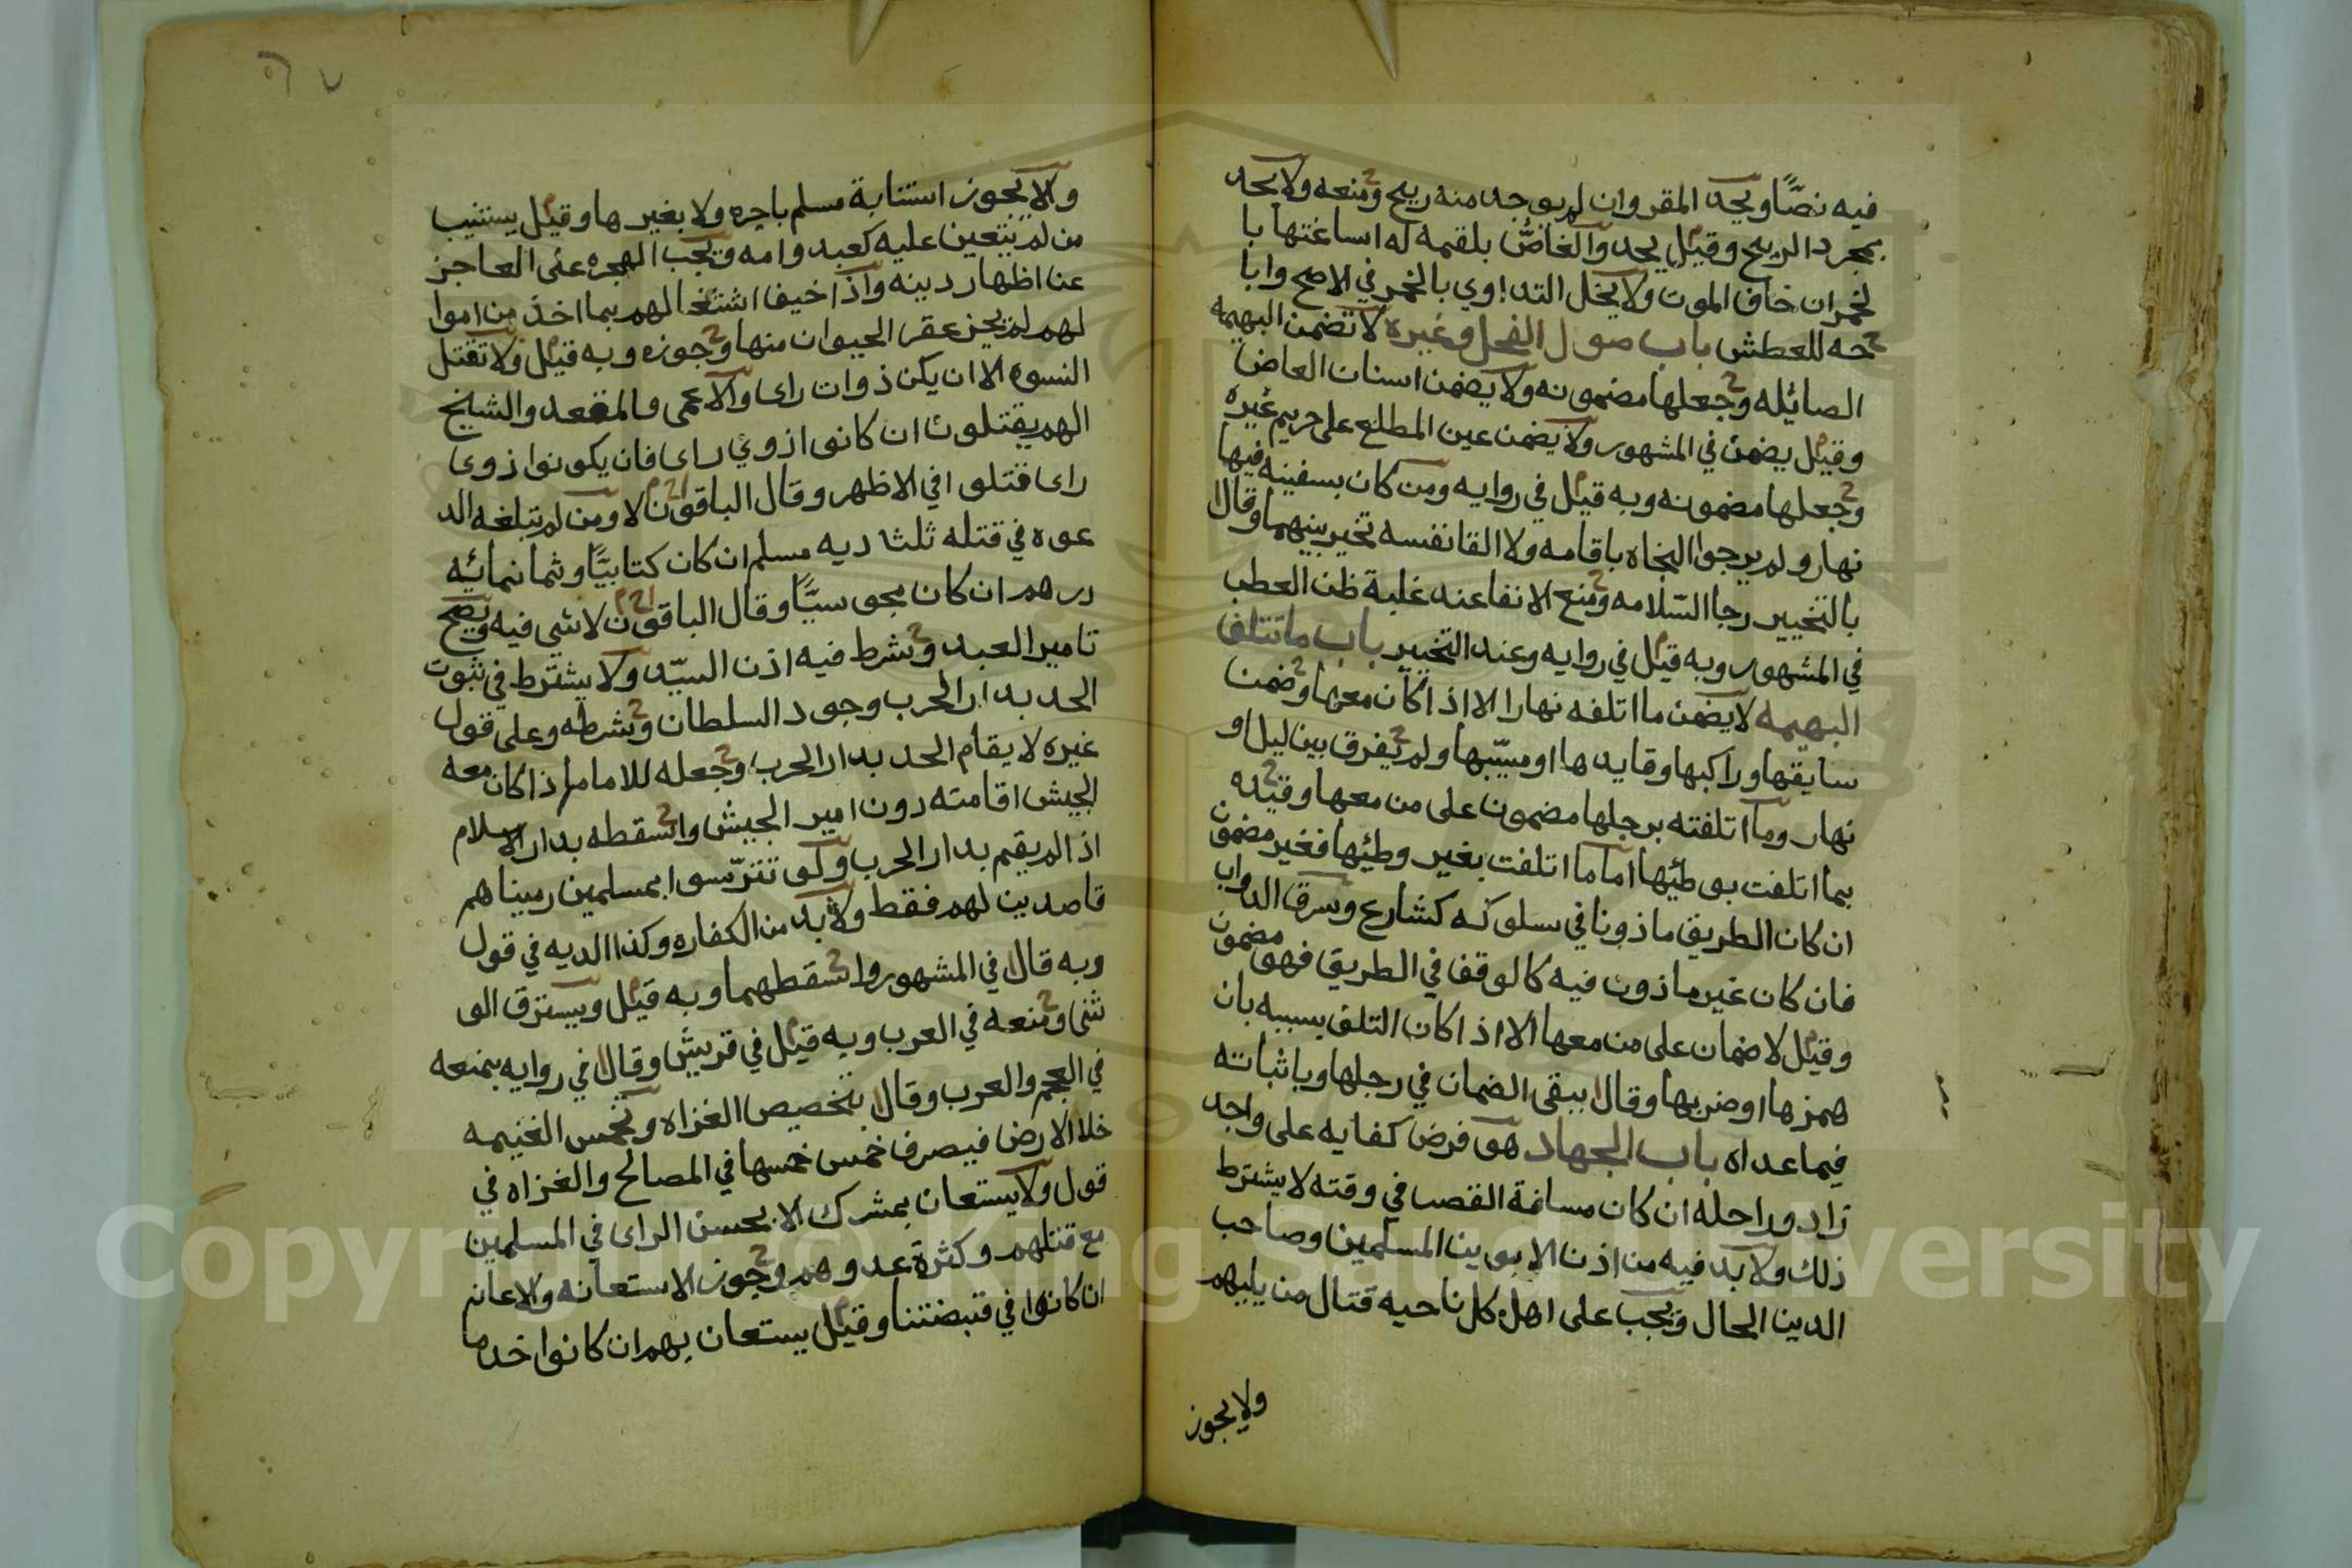 فيه نصًّا ويحد المقر وان لم يوجد منه ريح ومنعه ولا يحد
بمجرد الريح وقيل يحد والغاصُّ بلقمه له اساغتها با
لخمر ان خاف الموت ولا يحل التداوي بالخمر في الاصح وابا
حه للعطش باب صول الفحل وغيره لا تضمن البهيمه
الصائيله وجعلها مضمونه ولا يضمن اسنان العاض
وقيل يضمن في المشهور ولا يضمن عين المطلع على حريم غيره
وجعلها مضمونه وبه قيل في روايه ومن كان بسفينه فيها
نهار ولم يرجوا النجاه باقامه ولا القا نفسه تخير بينهما وقال
بالتخيير رجا السّلامه ومنع الانفا عند غلبة ظن العطب
في المشهور وبه قيل في روايه وعند التخيير باب ما تتلف
البهيمه لا يضمن ما اتلفه نهارا الا اذا كان معها وضمن
سايقها وراكبها وقايدها او مسيّبها ولم يفرق بين ليل او
نهار وما اتلفته برجلها مضمون على من معها وقيّده
بما اتلفت بوطئها اما ما اتلفت بغير وطئها فغير مضمون
ان كان الطريق ماذونا في سلوكه كشارع وسرق الدواب
فان كان غير ماذون فيه كالوقف في الطريق فهو مضمون
وقيل لا ضمان على من معها الا اذا كان التلف بسببه بان
همزها او ضربها وقال ببقى الضمان في رجلها وباثباته
فيما عداه باب الجهاد هو فرض كفايه على واجد
زاد وراحله ان كان مسافة القصر في وقته لا يشترط
ذلك ولا بد فيه من اذن الابوين المسلمين وصاحب
الدين الحال ويجب على اهل كل ناحيه قتال من يليهم
ولا يجوز
ولا يجوز استنابة مسلم باجره ولا بغيرها وقيل يستنيب
من لم يتعين عليه كعبد وامه ويجب الهجره على العاجز
عنا اظهار دينه واذا خيف اشتغالهم بما اخذ من اموا
لهم لم يجز عقر الحيوان منها وجوزه وبه قيل ولا تقتل
النسوه الا ان يكن ذوات راى والاعمى والمقعد والشيخ
الهم يقتلون ان كانوا ذوي راى فان يكونوا ذوى
راى قتلوا في الاظهر وقال الباقون لا ومن لم تبلغه الد
عوه في قتله ثلثا ديه مسلم ان كان كتابيًّا وثمانمائيه
درهم ان كان مجوسيًّا وقال الباقون لا شي فيه ويصح
تامير العبد وشرط فيه اذن السيّد ولا يشترط في ثبوت
الحد بدار الحرب وجود السلطان وشرطه وعلى قول
غيره لا يقام الحد بدار الحرب وجعله للامام اذا كان معه
الجيش اقامته دون امير الجيش واسقطه بدار الاسلام
اذا لم يقيم بدار الحرب ولو تترّسوا بمسلمين رميناهم
قاصدين لهم فقط ولا بد من الكفاره وكذا الديه في قول
وبه قال في المشهور واسقطهما وبه قيل ويسترق الو
ثنى ومنعه في العرب وبه قيل في قريش وقال في روايه بمنعه
في العجم والعرب وقال بتخصيص الغزاه وتخمس الغنيمه
خلا الارض فيصرف خمس خمسها في المصالح والغزاه في
قول ولا يستعان بمشرك الا بحسن الراى في المسلمين
مع قتلهم وكثرة عدوهم وجوز الاستعانه والاعانه
ان كانوا في قبضتنا وقيل يستعان بهم ان كانوا خدما
Copyright © King Saud University